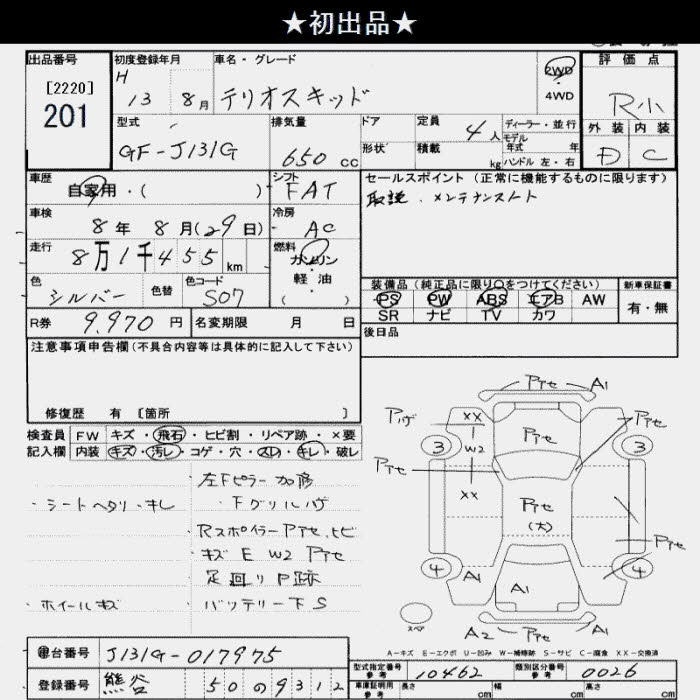 ★初出品★
出品番号
[2220]
201
初度登録年月
H 13 8月
車名・グレード
テリオスキッド
2WD
4WD
評価点
R小
外装 内装
D C
型式
GF-J131G
排気量
650 cc
ドア
形状
定員
4人
積載
kg
ディーラー・並行
モデル
年式 年
ハンドル 左・右
車歴
自家用・( )
シフト
FAT
セールスポイント(正常に機能するものに限ります)
取説、メンテナンスノート
車検
8年 8月(29日)
冷房
AC
走行
8万1千455 km
燃料
ガソリン
軽油
( )
色
シルバー
色替
色コード
S07
装備品(純正品に限り○をつけてください)
PS PW ABS エアB AW
SR ナビ TV カワ
新車保証書
有・無
R券
9.970円
名変期限 月 日
後日品
注意事項申告欄(不具合内容等は具体的に記入して下さい)
修復歴 有 [箇所 ]
検査員
記入欄
FW キズ・飛石・ヒビ割・リペア跡・×要
内装 キズ・汚レ・コゲ・穴・スレ・キレ・破レ
・シートヘタリ・キレ
・ホイールキズ
・左Fピラー加修
・Fグリルハゲ
・RスポイラーPアセ、ヒビ
・キズ E W2 Pアセ
・足回りP跡
・バッテリー下S
Pアセ A1
Pハゲ
XX
W2
XX
Pアセ
Pアセ
Pアセ
Pアセ
(大)
Pアセ
3
3
4
4
A1
A1
A1
A2 Pアセ A1
スペア
A-キズ E-エクボ U-凹み W-補修跡 S-サビ C-腐食 XX-交換済
車台番号
J131G-017975
登録番号
熊谷 50 の 9312
型式指定番号
参考
10462
類別区分番号
参考
0026
車庫証明用
参考
長さ cm
幅 cm
高さ cm